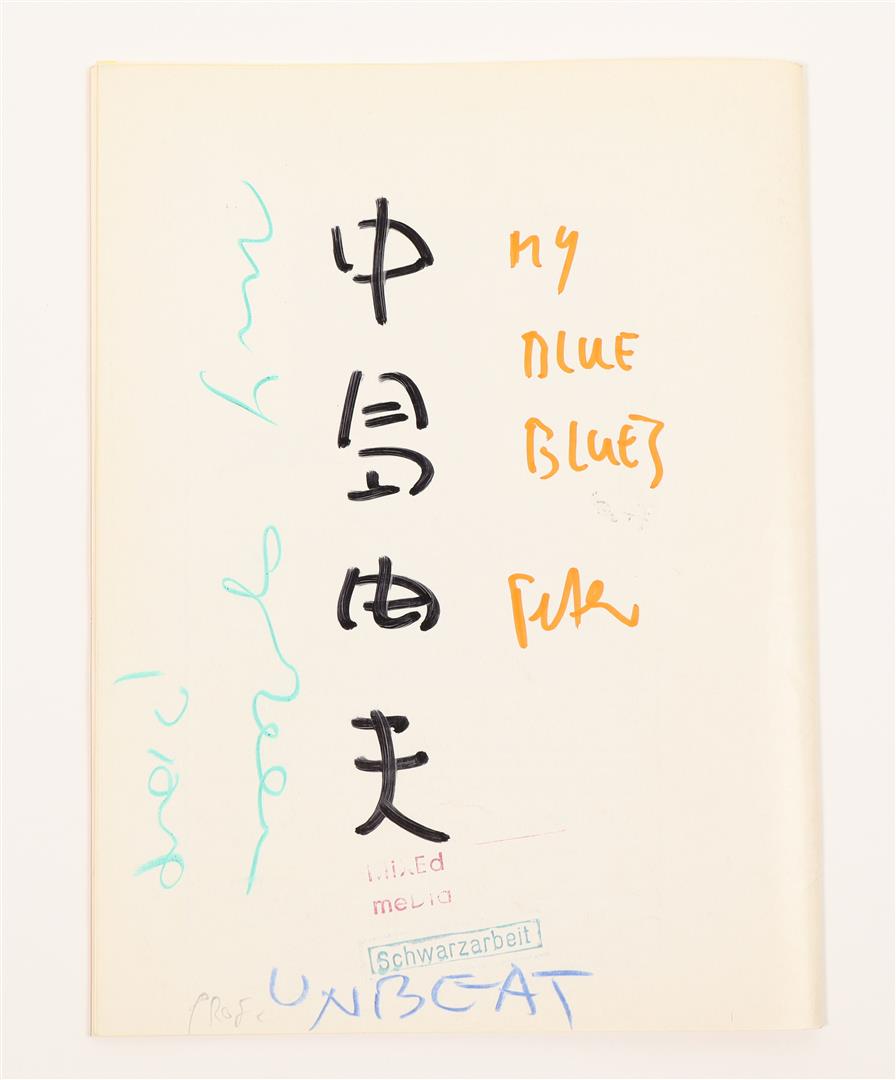 中島由夫
my
BLUE
BLUES
Peter
my
green
MixEd
meDia
Schwarzarbeit
PROF. UNBEAT